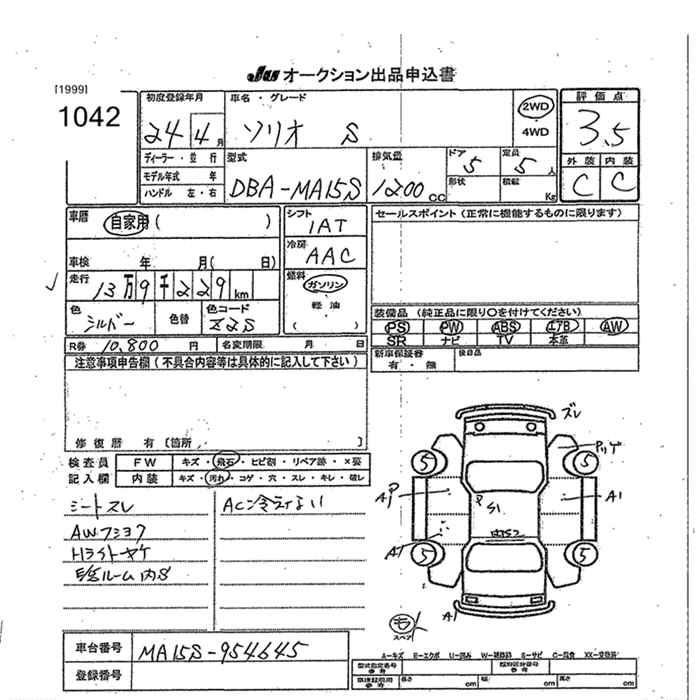 JU オークション出品申込書
[1999]
1042
初度登録年月
24 4月
車名・グレード
ソリオ S
2WD
4WD
評価点
3.5
外装 内装
C C
ディーラー・並行
モデル年式 年
ハンドル 左・右
型式
DBA-MA15S
排気量
1200 cc
ドア 5
形状
定員 5人
積載 Kg
車歴 自家用 ( )
シフト
1AT
冷房
AAC
燃料
ガソリン
軽油
( )
車検 年 月( 日)
走行 13万9千229km
色 シルバー 色替 色コード Z2S
R券 10,800 円 名変期限 月 日
セールスポイント (正常に機能するものに限ります)
装備品 (純正品に限り○を付けてください)
PS PW ABS エアB AW
SR ナビ TV 本革
新車保証書 後日品
有・無
注意事項申告欄 (不具合内容等は具体的に記入して下さい)
修復歴 有 [箇所 ]
検査員
記入欄
FW キズ・飛石・ヒビ割・リペア跡・×要
内装 キズ・汚れ・コゲ・穴・スレ・キレ・破レ
シートスレ
AWフショク
Hライトヤケ
ACン冷えない
車台番号 MA15S-954645
登録番号
ズレ
5 5
AP A1
S1
5 5
A1
スペア
A-キズ E-エクボ U-凹み W-補修跡 S-サビ C-腐食 XX-交換跡
型式指定番号
類別区分番号
長さ cm 幅 cm 高さ cm